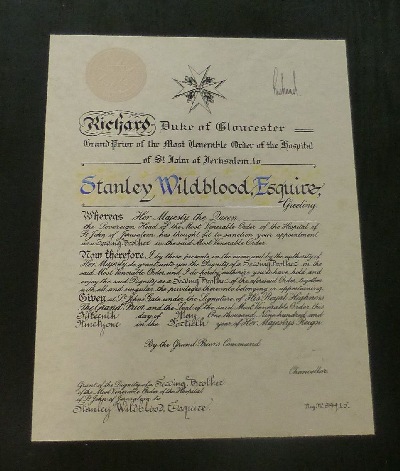 Richard
Richard Duke of Gloucester
Grand Prior of the Most Venerable Order of the Hospital
of St John of Jerusalem to
Stanley Wildblood, Esquire,
Greeting
Whereas Her Majesty the Queen
the Sovereign Head of the Most Venerable Order of the Hospital of
St John of Jerusalem has thought fit to sanction your appointment
as a Serving Brother in the said Most Venerable Order
Now therefore I by these presents in the name and by the authority of
Her Majesty do grant unto you the Dignity of a Serving Brother in the
said Most Venerable Order and I do hereby authorize you to have hold and
enjoy the said Dignity as a Serving Brother of the aforesaid Order together
with all and singular the privileges thereunto belonging or appertaining
Given at St Johns Gate under the Signature of His Royal Highness
The Grand Prior and the Seal of the said Most Venerable Order this
Fifteenth day of May One thousand Nine hundred and
Ninetyone in the Fortieth year of Her Majestys Reign
By the Grand Priors Command
Chancellor
Grant of the Dignity of a Serving Brother
of the Most Venerable Order of the Hospital
of St John of Jerusalem to
Stanley Wildblood, Esquire